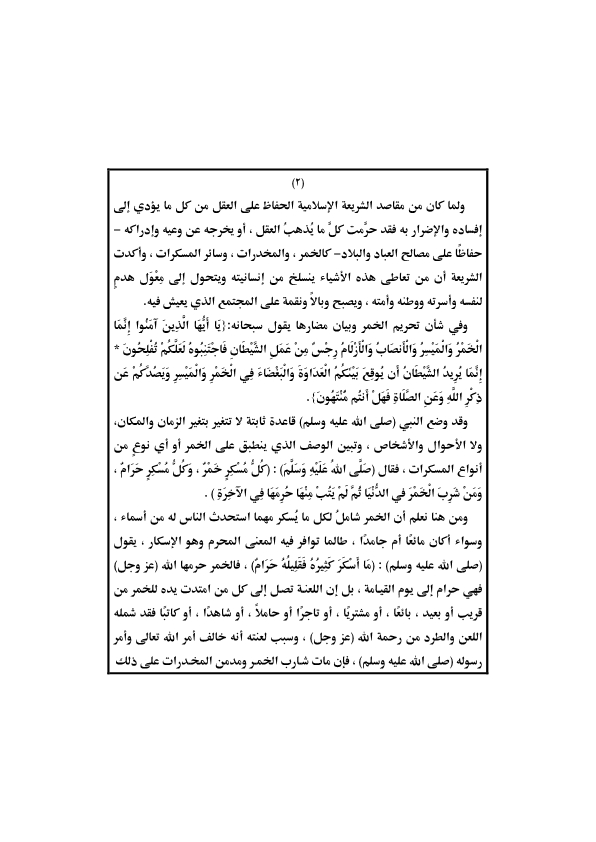 (٢)
ولما كان من مقاصد الشريعة الإسلامية الحفاظ على العقل من كل ما يؤدي إلى
إفساده والإضرار به فقد حرَّمت كلَّ ما يُذهبُ العقل ، أو يخرجه عن وعيه وإدراكه –
حفاظًا على مصالح العباد والبلاد- كالخمر ، والمخدرات ، وسائر المسكرات ، وأكدت
الشريعة أن من تعاطى هذه الأشياء ينسلخ من إنسانيته ويتحول إلى مِعْوَل هدمٍ
لنفسه وأسرته ووطنه وأمته ، ويصبح وبالاً ونقمة على المجتمع الذي يعيش فيه.
وفي شأن تحريم الخمر وبيان مضارها يقول سبحانه:{يَا أَيُّهَا الَّذِينَ آمَنُوا إِنَّمَا
الْخَمْرُ وَالْمَيْسِرُ وَالْأَنصَابُ وَالْأَزْلَامُ رِجْسٌ مِنْ عَمَلِ الشَّيْطَانِ فَاجْتَنِبُوهُ لَعَلَّكُمْ تُفْلِحُونَ *
إِنَّمَا يُرِيدُ الشَّيْطَانُ أَن يُوقِعَ بَيْنَكُمُ الْعَدَاوَةَ وَالْبَغْضَاءَ فِي الْخَمْرِ وَالْمَيْسِرِ وَيَصُدَّكُمْ عَن
ذِكْرِ اللَّهِ وَعَنِ الصَّلَاةِ فَهَلْ أَنتُم مُّنْتَهُونَ}.
وقد وضع النبي (صلى الله عليه وسلم) قاعدة ثابتة لا تتغير بتغير الزمان والمكان،
ولا الأحوال والأشخاص ، وتبين الوصف الذي ينطبق على الخمر أو أي نوعٍ من
أنواع المسكرات ، فقال (صَلَّى اللهُ عَلَيْهِ وَسَلَّمَ) : (كُلُّ مُسْكِرٍ خَمْرٌ ، وَكُلُّ مُسْكِرٍ حَرَامٌ ،
وَمَنْ شَرِبَ الْخَمْرَ في الدُّنْيَا ثُمَّ لَمْ يَتُبْ مِنْهَا حُرِمَهَا فِي الآخِرَةِ ) .
ومن هنا نعلم أن الخمر شاملٌ لكل ما يُسكر مهما استحدث الناس له من أسماء ،
وسواء أكان مائعًا أم جامدًا ، طالما توافر فيه المعنى المحرم وهو الإسكار ، يقول
(صلى الله عليه وسلم) : (مَا أَسْكَرَ كَثِيرُهُ فَقَلِيلُهُ حَرَامٌ) ، فالخمر حرمها الله (عز وجل)
فهي حرام إلى يوم القيامة ، بل إن اللعنة تصل إلى كل من امتدت يده للخمر من
قريب أو بعيد ، بائعًا ، أو مشتريًا ، أو تاجرًا أو حاملاً ، أو شاهدًا ، أو كاتبًا فقد شمله
اللعن والطرد من رحمة الله (عز وجل) ، وسبب لعنته أنه خالف أمر الله تعالى وأمر
رسوله (صلى الله عليه وسلم) ، فإن مات شارب الخمر ومدمن المخدرات على ذلك